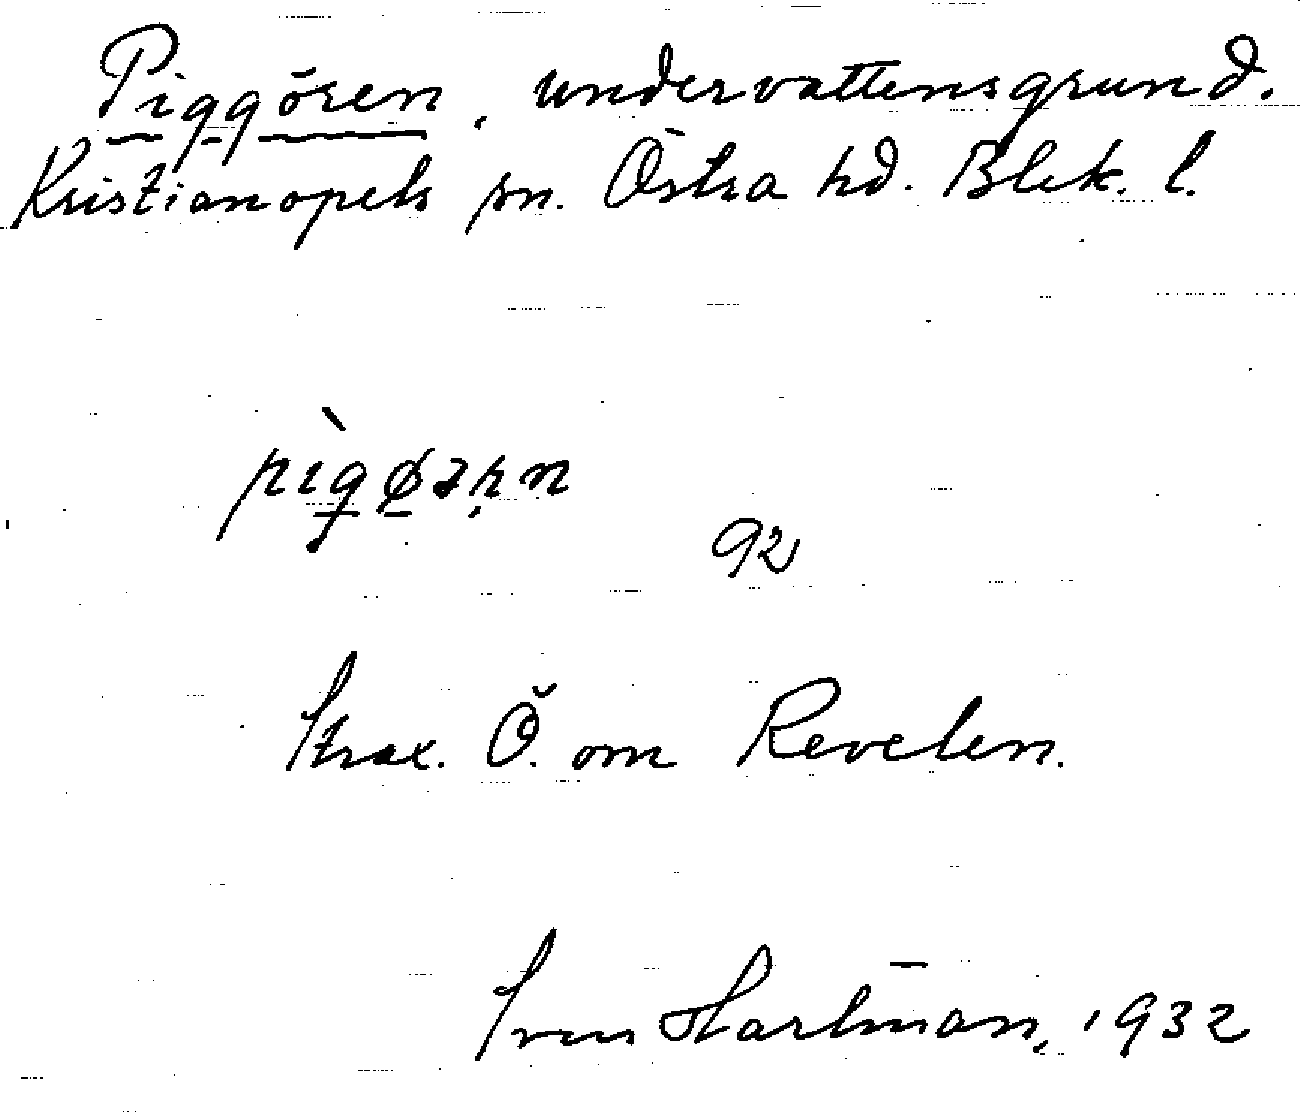 Piggören, undervattensgrund.
Kristianopels sn. Östra hd. Blek. l.
92
Strax. Ö. om Revelen.
Sven Hartman, 1932